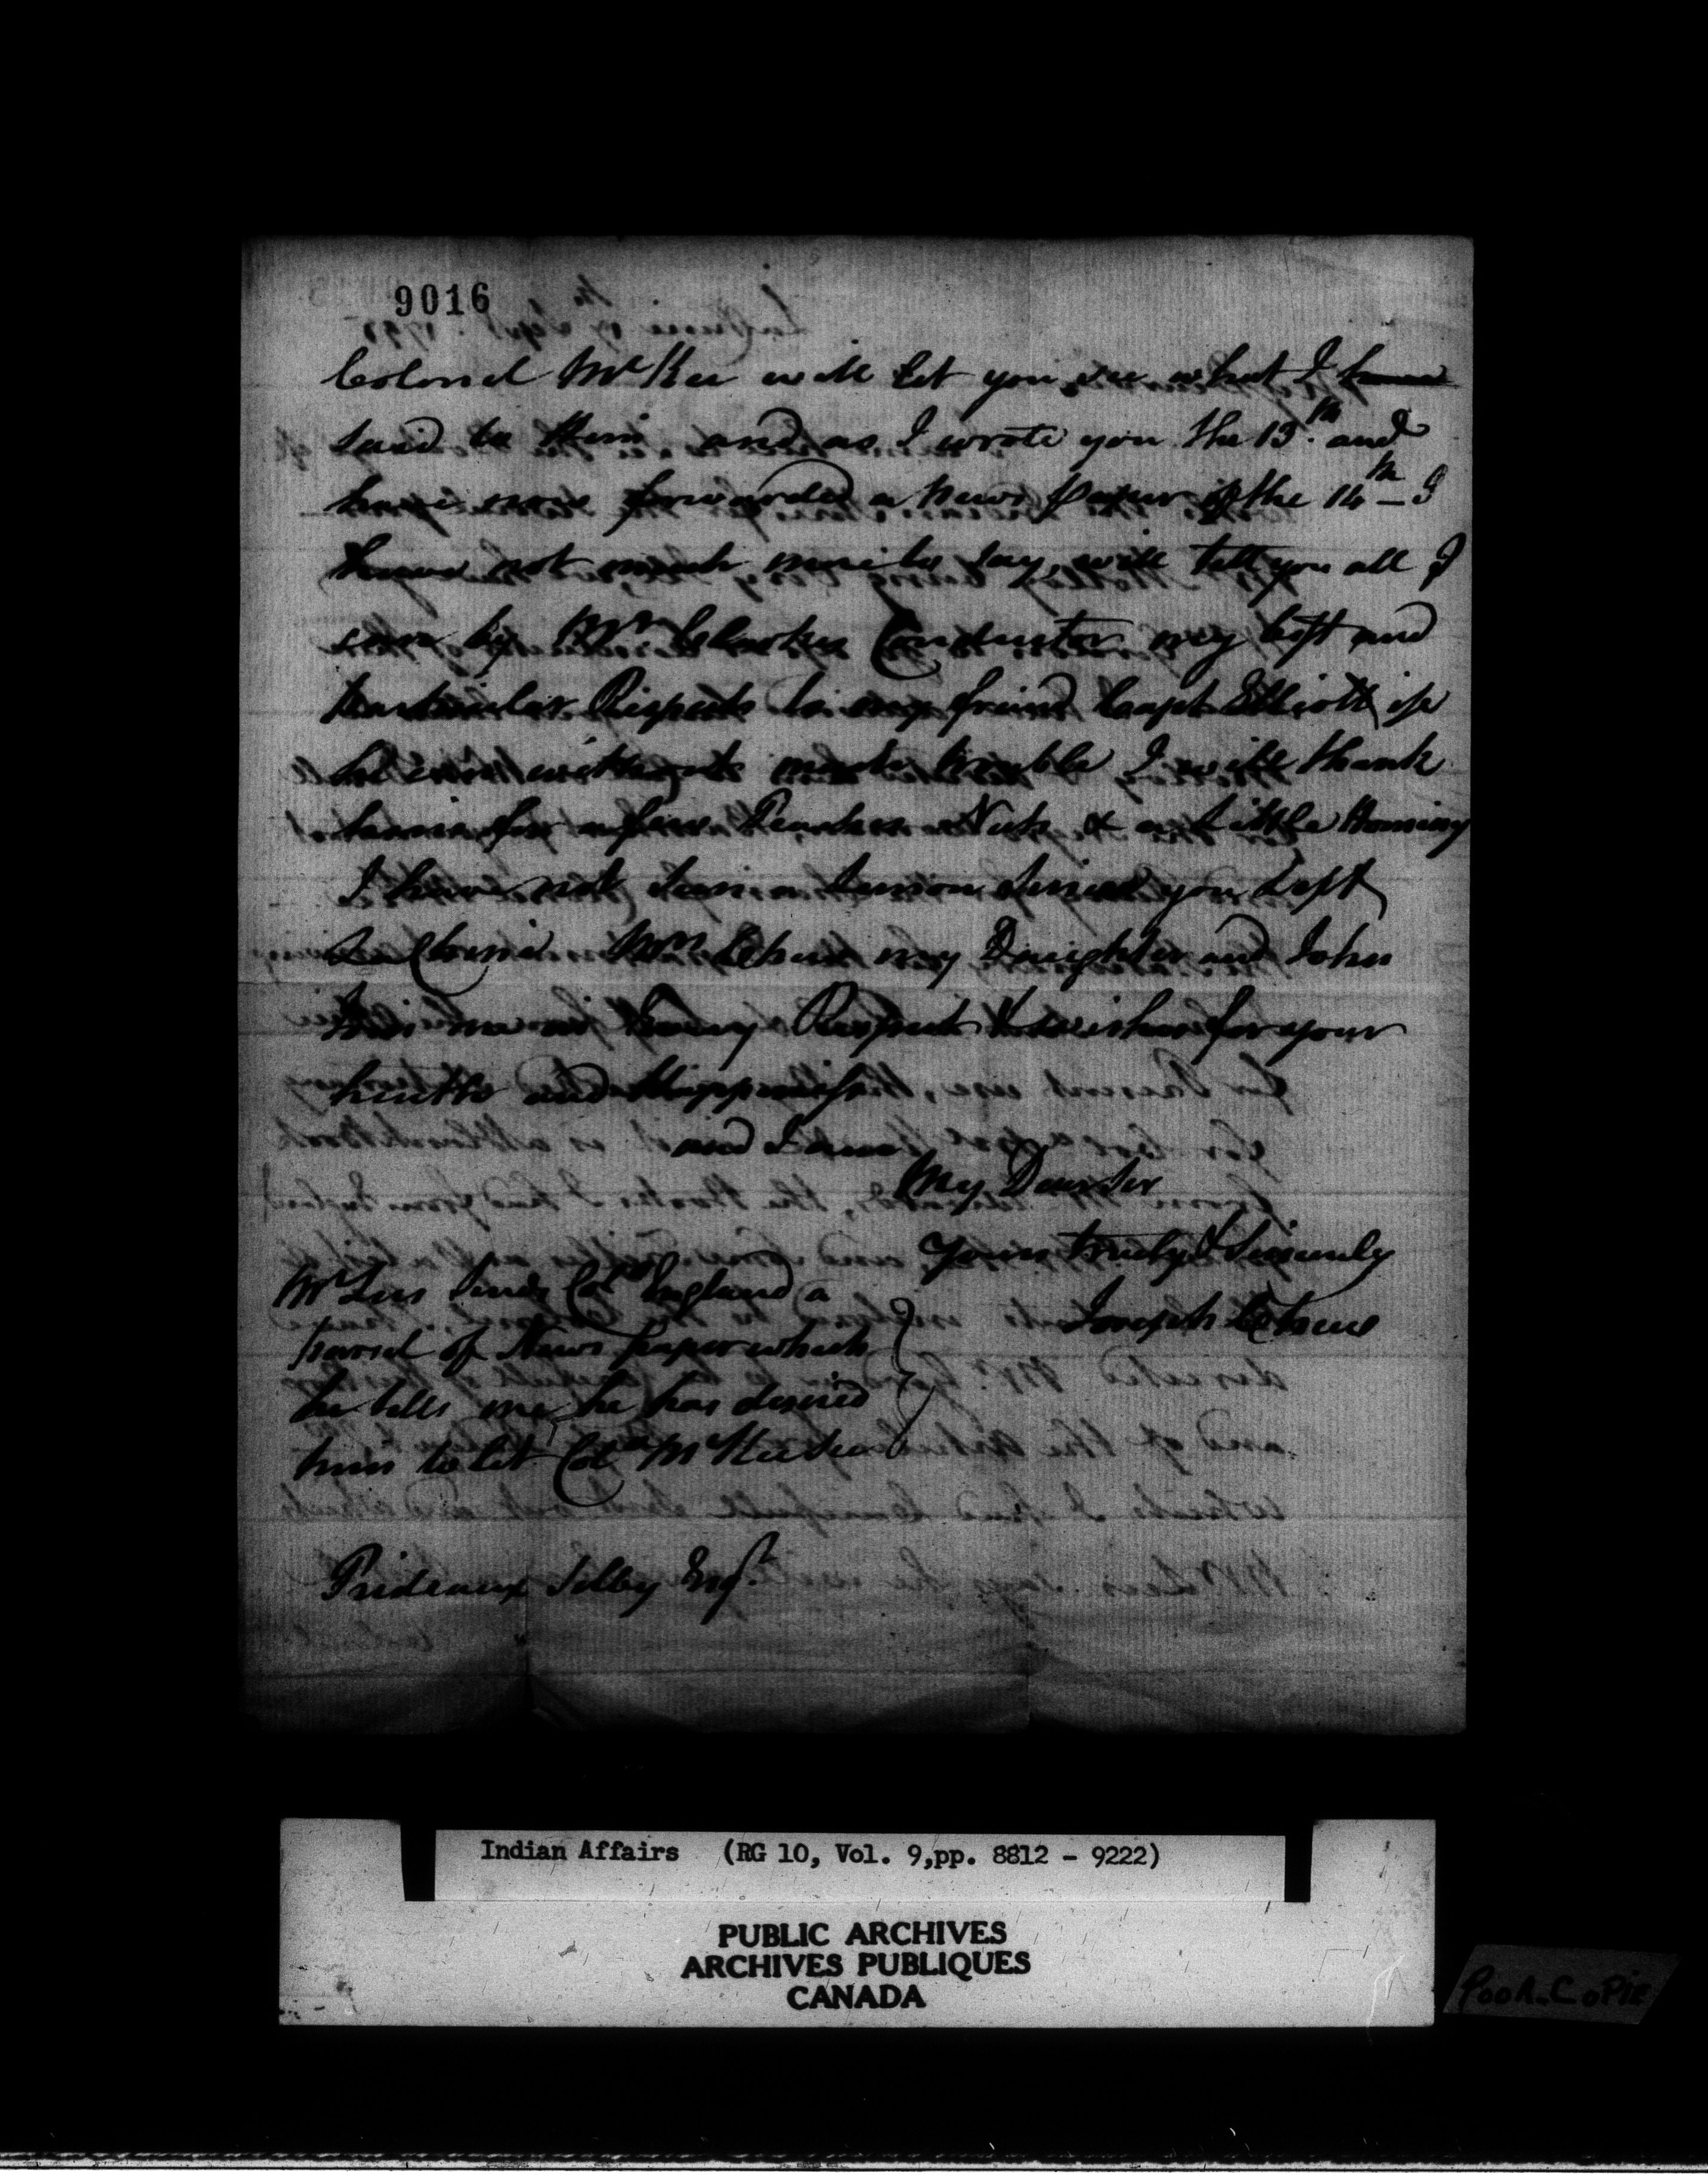 9016
Colonel McKee will let you see what I have
said to him and as I wrote you the 13.th and
have now forwarded a News paper of the 14th I
have not much more to say, will tell you all I
can by Mr Clarke Conductor my best and
particular Respects to my friend Capt Elliott if
he can without much trouble I will thank
him for a few Peaches Nuts & a Little Hominy
I have not seen a Lemon since you Left
La Chine Mrs Chew my Daughter and John
Join me in Every Respect & wishes for your
health and Happiness
and I am
My Dear Sir
Yours truly & Sincerely
Joseph Chew
Mr Lees sends Col England a
parcel of News paper which
he tells me he has desired
him to let Col McKee see
Prideaux Selby Esqr
Indian Affairs (RG 10, Vol. 9,pp. 8812 - 9222)
PUBLIC ARCHIVES
ARCHIVES PUBLIQUES
CANADA
POOR COPIE